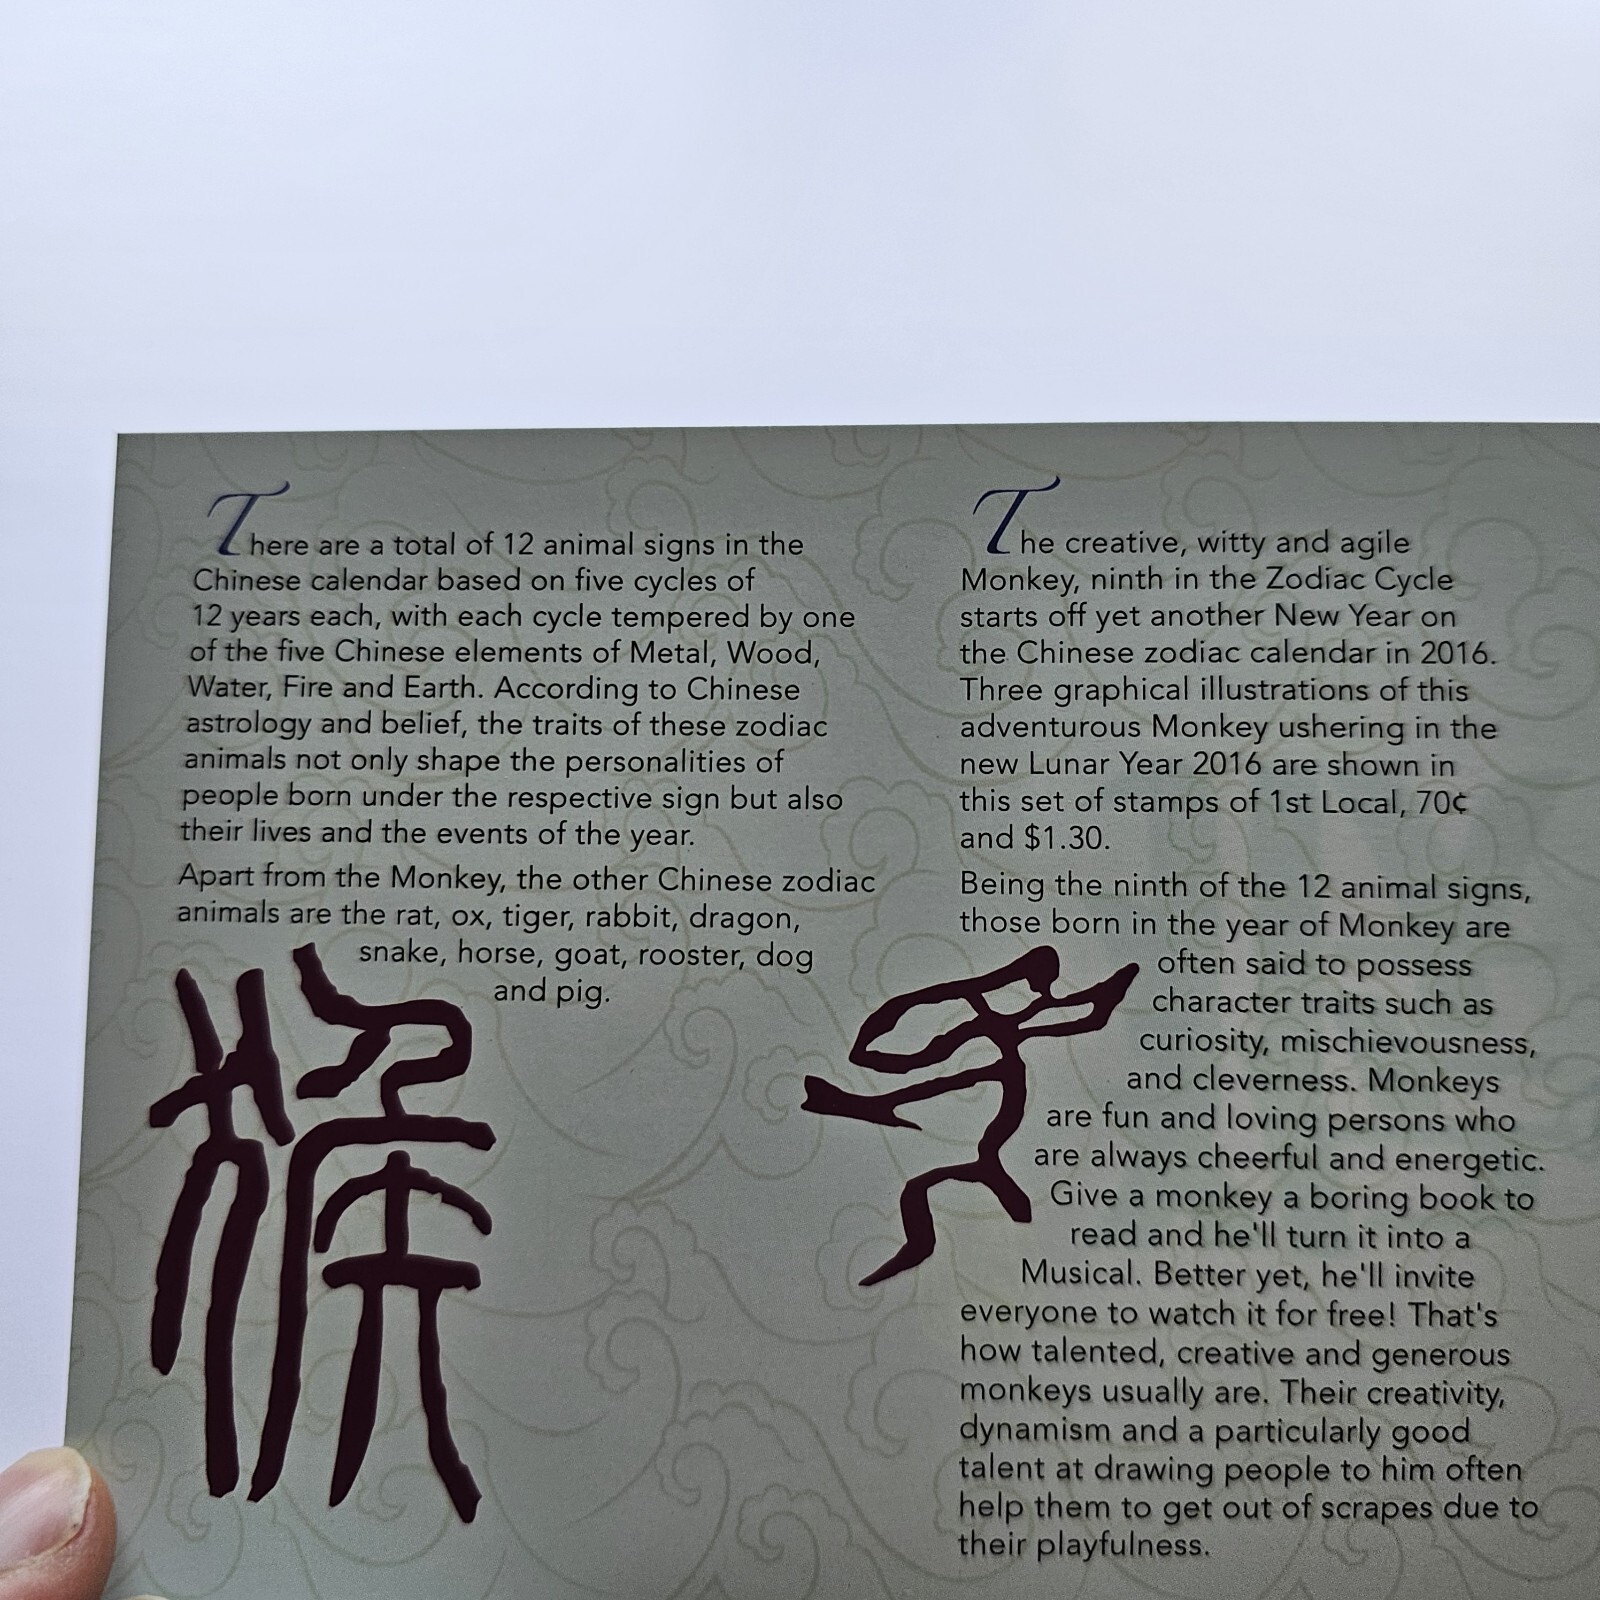 There are a total of 12 animal signs in the
Chinese calendar based on five cycles of
12 years each, with each cycle tempered by one
of the five Chinese elements of Metal, Wood,
Water, Fire and Earth. According to Chinese
astrology and belief, the traits of these zodiac
animals not only shape the personalities of
people born under the respective sign but also
their lives and the events of the year.
Apart from the Monkey, the other Chinese zodiac
animals are the rat, ox, tiger, rabbit, dragon,
snake, horse, goat, rooster, dog
and pig.
猴
The creative, witty and agile
Monkey, ninth in the Zodiac Cycle
starts off yet another New Year on
the Chinese zodiac calendar in 2016.
Three graphical illustrations of this
adventurous Monkey ushering in the
new Lunar Year 2016 are shown in
this set of stamps of 1st Local, 70¢
and $1.30.
Being the ninth of the 12 animal signs,
those born in the year of Monkey are
often said to possess
character traits such as
curiosity, mischievousness,
and cleverness. Monkeys
are fun and loving persons who
are always cheerful and energetic.
Give a monkey a boring book to
read and he'll turn it into a
Musical. Better yet, he'll invite
everyone to watch it for free! That's
how talented, creative and generous
monkeys usually are. Their creativity,
dynamism and a particularly good
talent at drawing people to him often
help them to get out of scrapes due to
their playfulness.